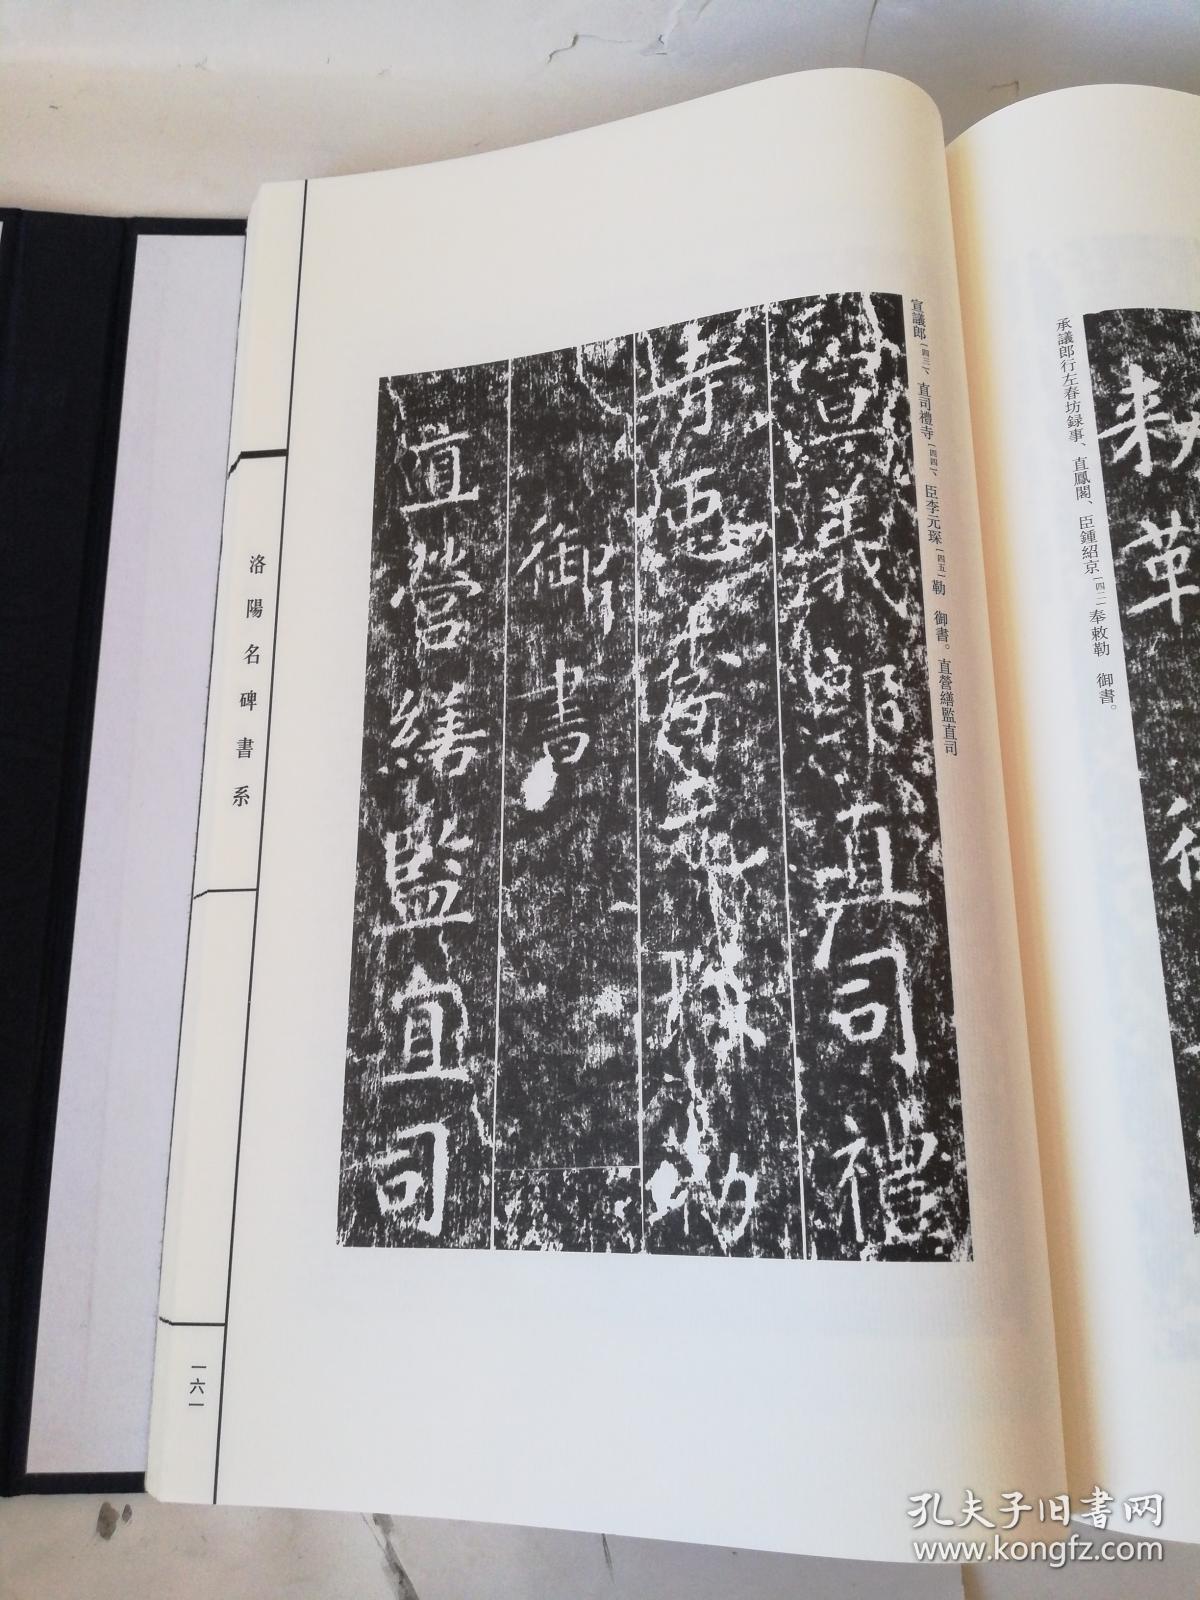 承議郎行左春坊録事、直鳳閣、臣鍾紹京[四二]奉敕勒　御書。
敕
宣議郎[四三]、直司禮寺[四四]、臣李元琛[四五]勒　御書。直營繕監直司
宣義郎直司禮
寺臣李元琮勒
御書
直營繕監直司
洛陽名碑書系
一六一
孔夫子旧书网
www.kongfz.com